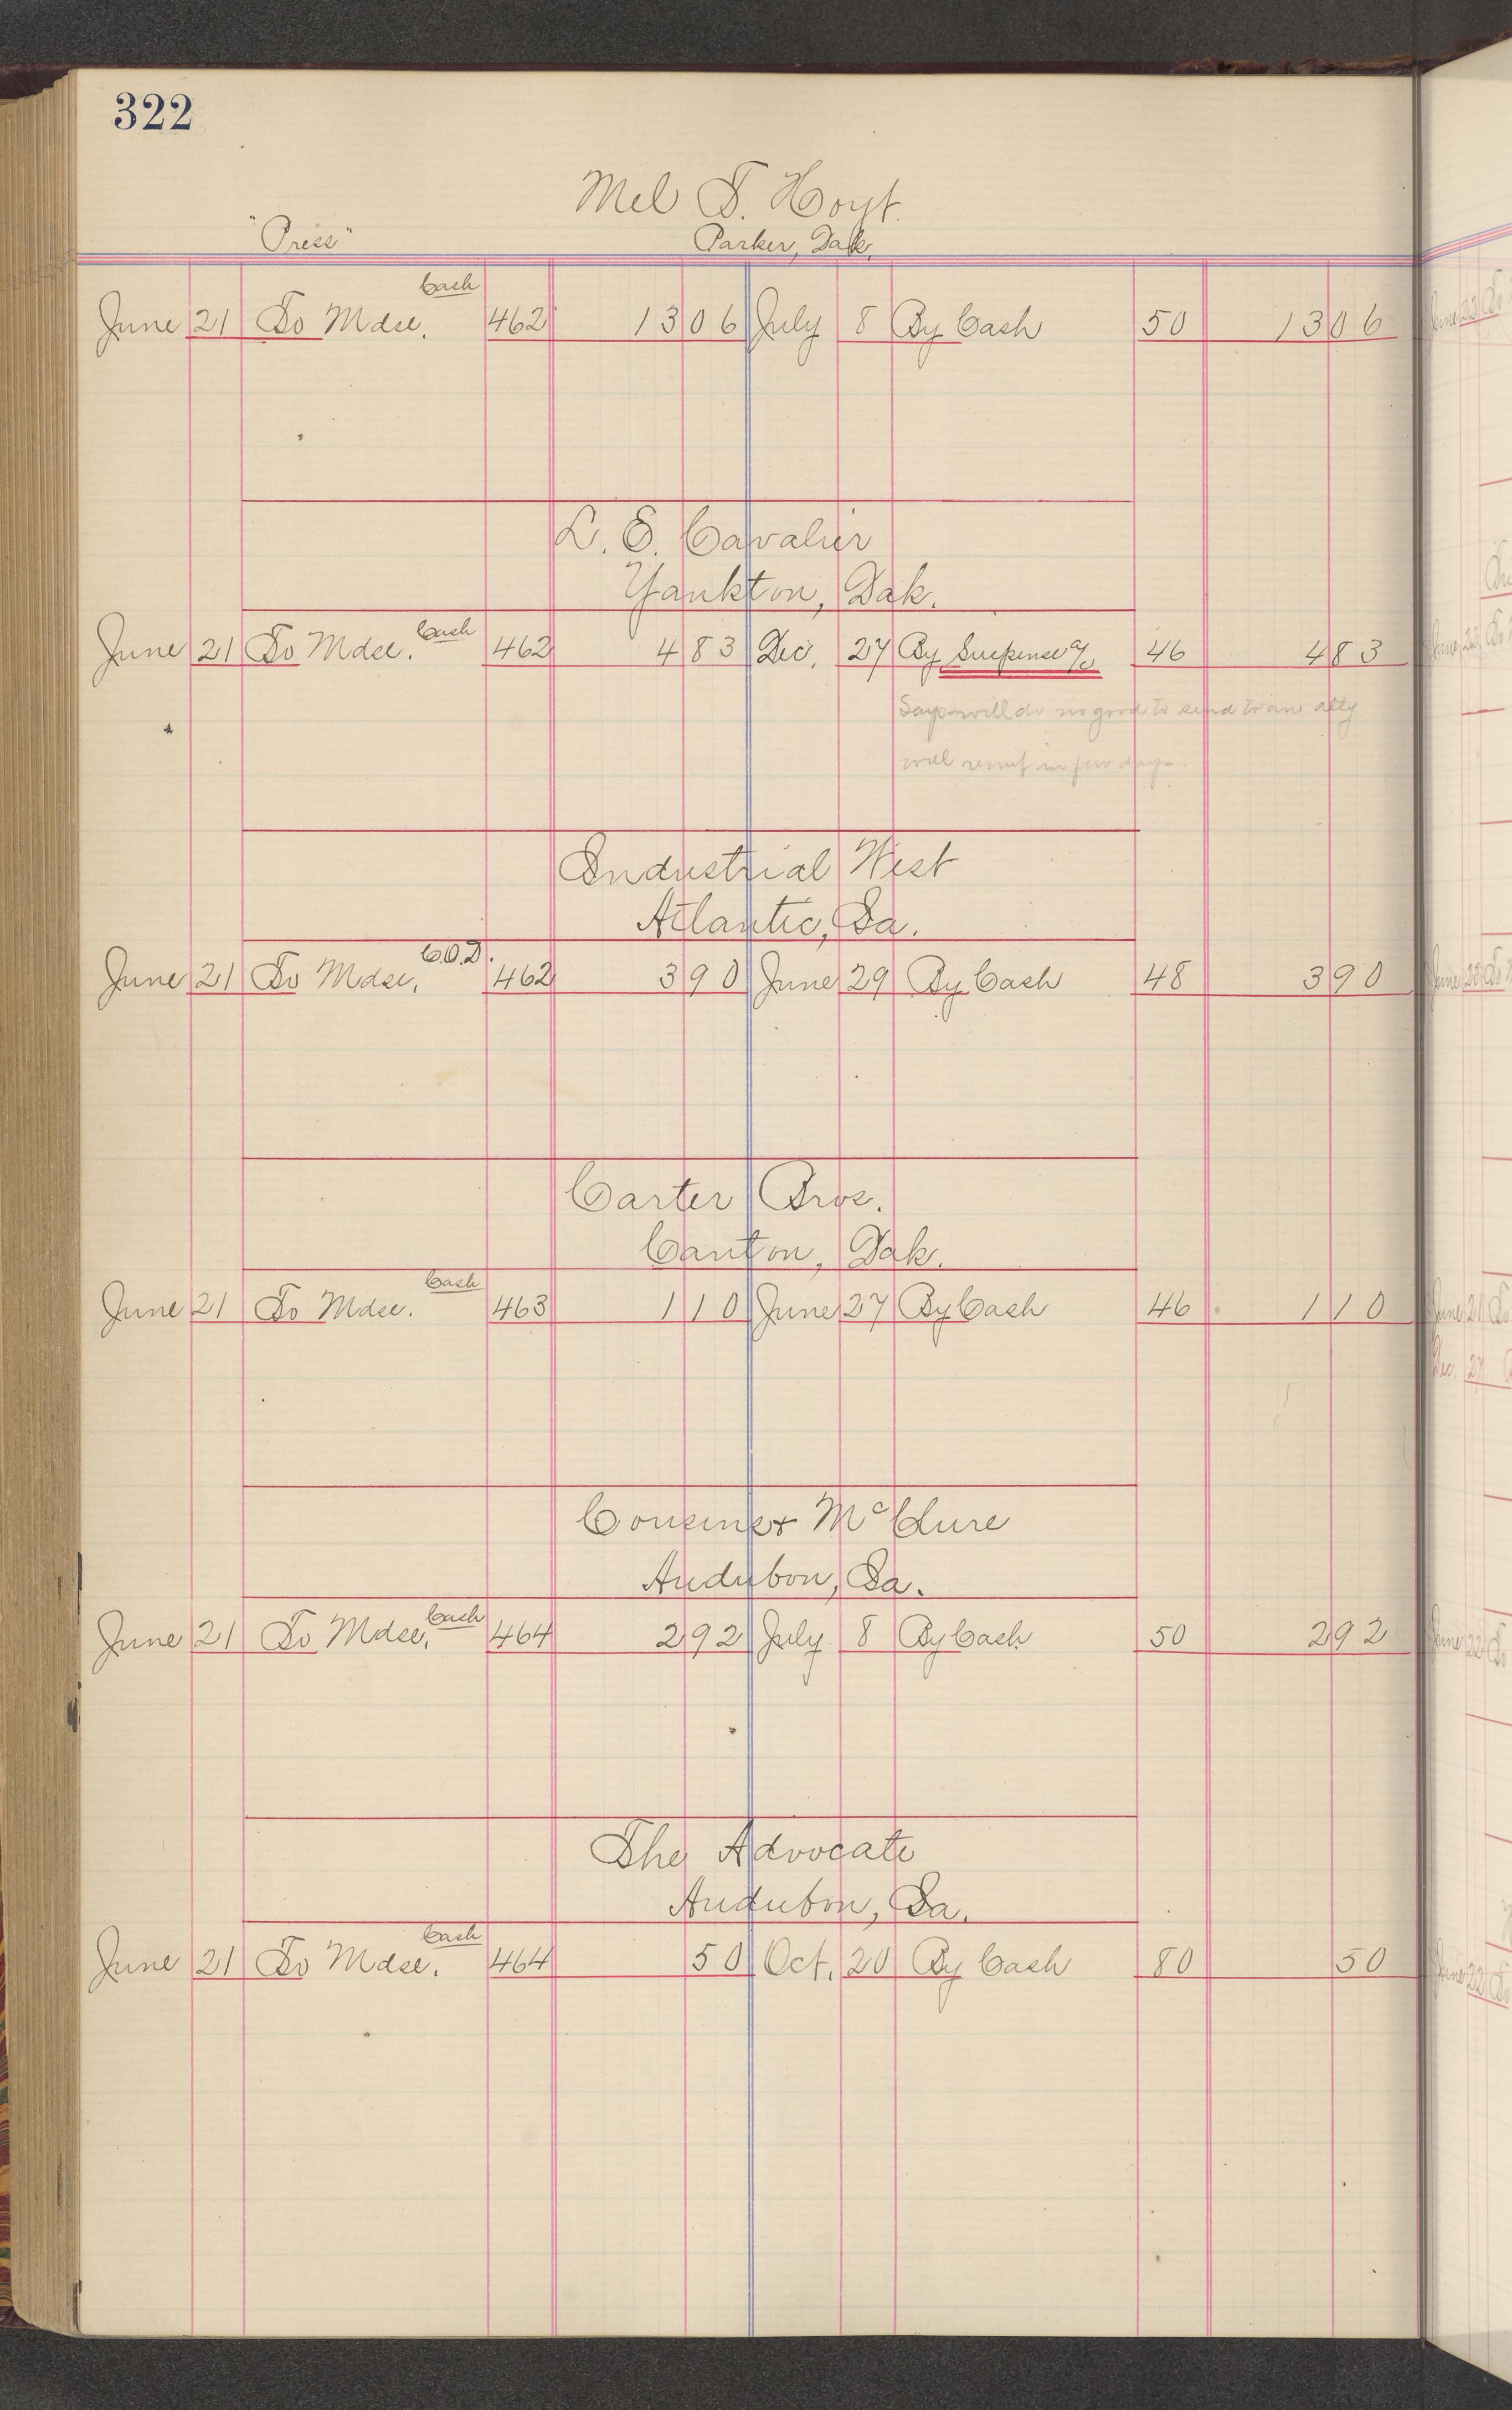 322
Mel T. Hoyt.
"Press" Parker, Dak.
Cash
June 21 To Mdse. 462 13 06 July 8 By Cash 50 13 06
L. E. Cavalier
Yankton, Dak.
Cash
June 21 To Mdse. 462 4 83 Dec. 27 By Suspense a/c 46 4 83
Says will do no good to send to an atty
will remit in few days.
Industrial West
Atlantic, Ia.
C.O.D.
June 21 To Mdse. 462 3 90 June 29 By Cash 48 3 90
Carter Bros.
Canton, Dak.
Cash
June 21 To Mdse. 463 1 10 June 27 By Cash 46 1 10
Cousins & McClure
Audubon, Ia.
Cash
June 21 To Mdse. 464 2 92 July 8 By Cash 50 2 92
The Advocate
Audubon, Ia.
Cash
June 21 To Mdse. 464 50 Oct. 20 By Cash 80 50